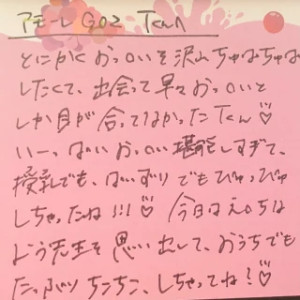 アモーレ G02 Tくんへ
とにかくおっ○いを沢山ちゅぱちゅぱ
したくて、出会って早々おっ○いと
しか目が合ってなかったTくん♡
いーっぱいおっ○い堪能しすぎて、
授乳でも、ぱいずりでもぴゅっぴゅ
しちゃったね!!!♡ 今日はえ○ちな
よう先生を思い出して、おうちでも
たっぷりちこちこ、しちゃってね?♡